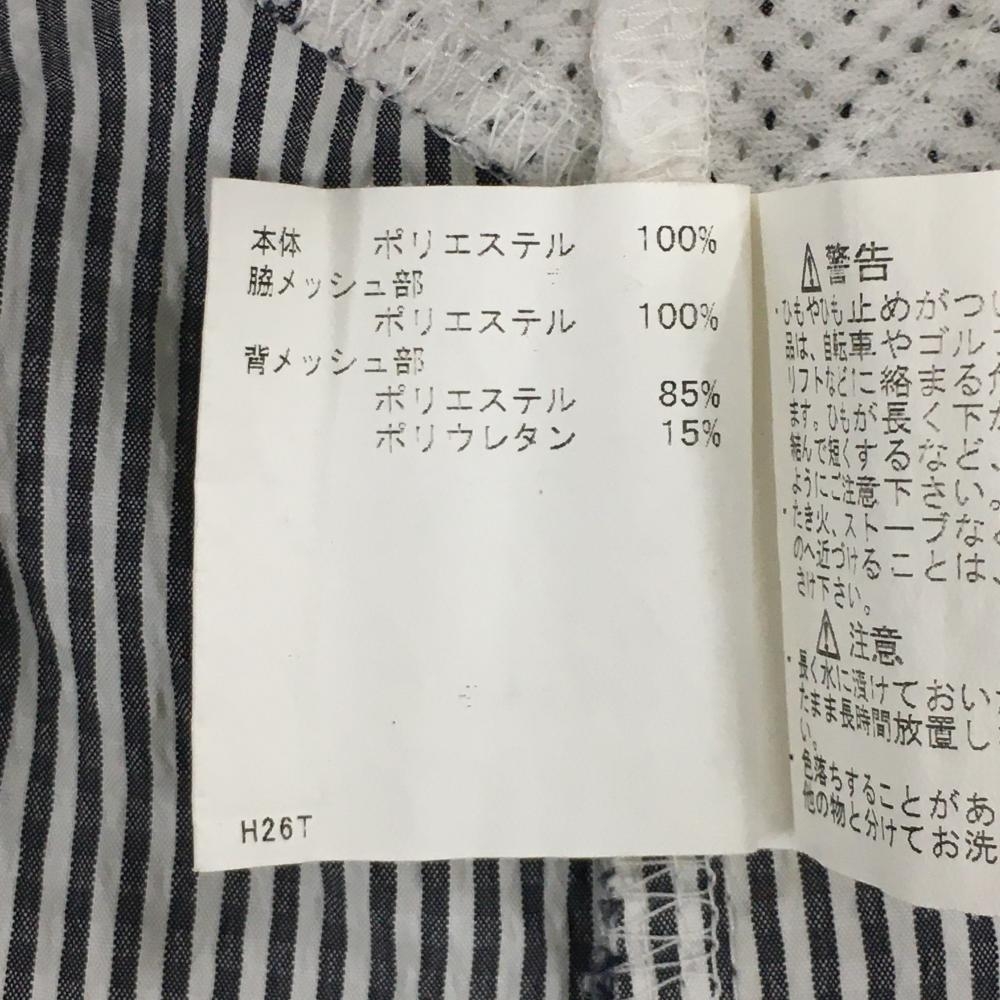 本体 ポリエステル 100%
脇メッシュ部
ポリエステル 100%
背メッシュ部
ポリエステル 85%
ポリウレタン 15%
H26T
⚠警告
・ひもやひも止めがつい
品は、自転車やゴルフ
リフトなどに絡まる危
ます。ひもが長く下が
結んで短くするなど、
ようにご注意下さい。
・たき火、ストーブな
のへ近づけることは、
さけ下さい。
⚠注意
・長く水に漬けておい
たまま長時間放置し
い。
・色落ちすることがあ
他の物と分けてお洗